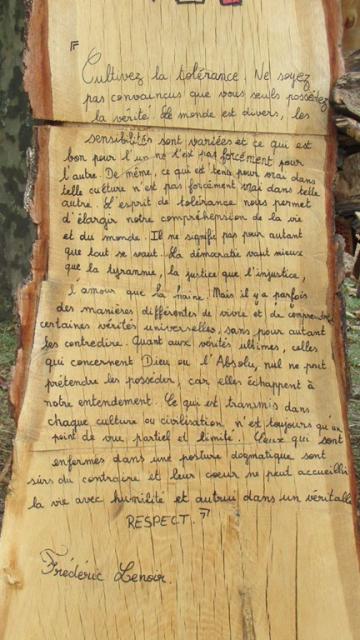 "
Cultivez la tolérance. Ne soyez
pas convaincus que vous seuls possédez
la vérité. Le monde est divers, les
sensibilités sont variées et ce qui est
bon pour l'un ne l'est pas forcément pour
l'autre. De même, ce qui est tenu pour vrai dans
telle culture n'est pas forcément vrai dans telle
autre. L'esprit de tolérance nous permet
d'élargir notre compréhension de la vie
et du monde. Il ne signifie pas pour autant
que tout se vaut. La démocratie vaut mieux
que la tyrannie, la justice que l'injustice,
l'amour que la haine. Mais il y a parfois
des manières différentes de vivre et de comprendre
certaines vérités universelles, sans pour autant
les contredire. Quant aux vérités ultimes, celles
qui concernent Dieu ou l'Absolu, nul ne peut
prétendre les posséder, car elles échappent à
notre entendement. Ce qui est transmis dans
chaque culture ou civilisation n'est toujours qu'un
point de vue, partiel et limité. Ceux qui sont
enfermés dans une posture dogmatique sont
sûrs du contraire et leur coeur ne peut accueillir
la vie avec humilité et autrui dans un véritable
RESPECT. "
Frédéric Lenoir.